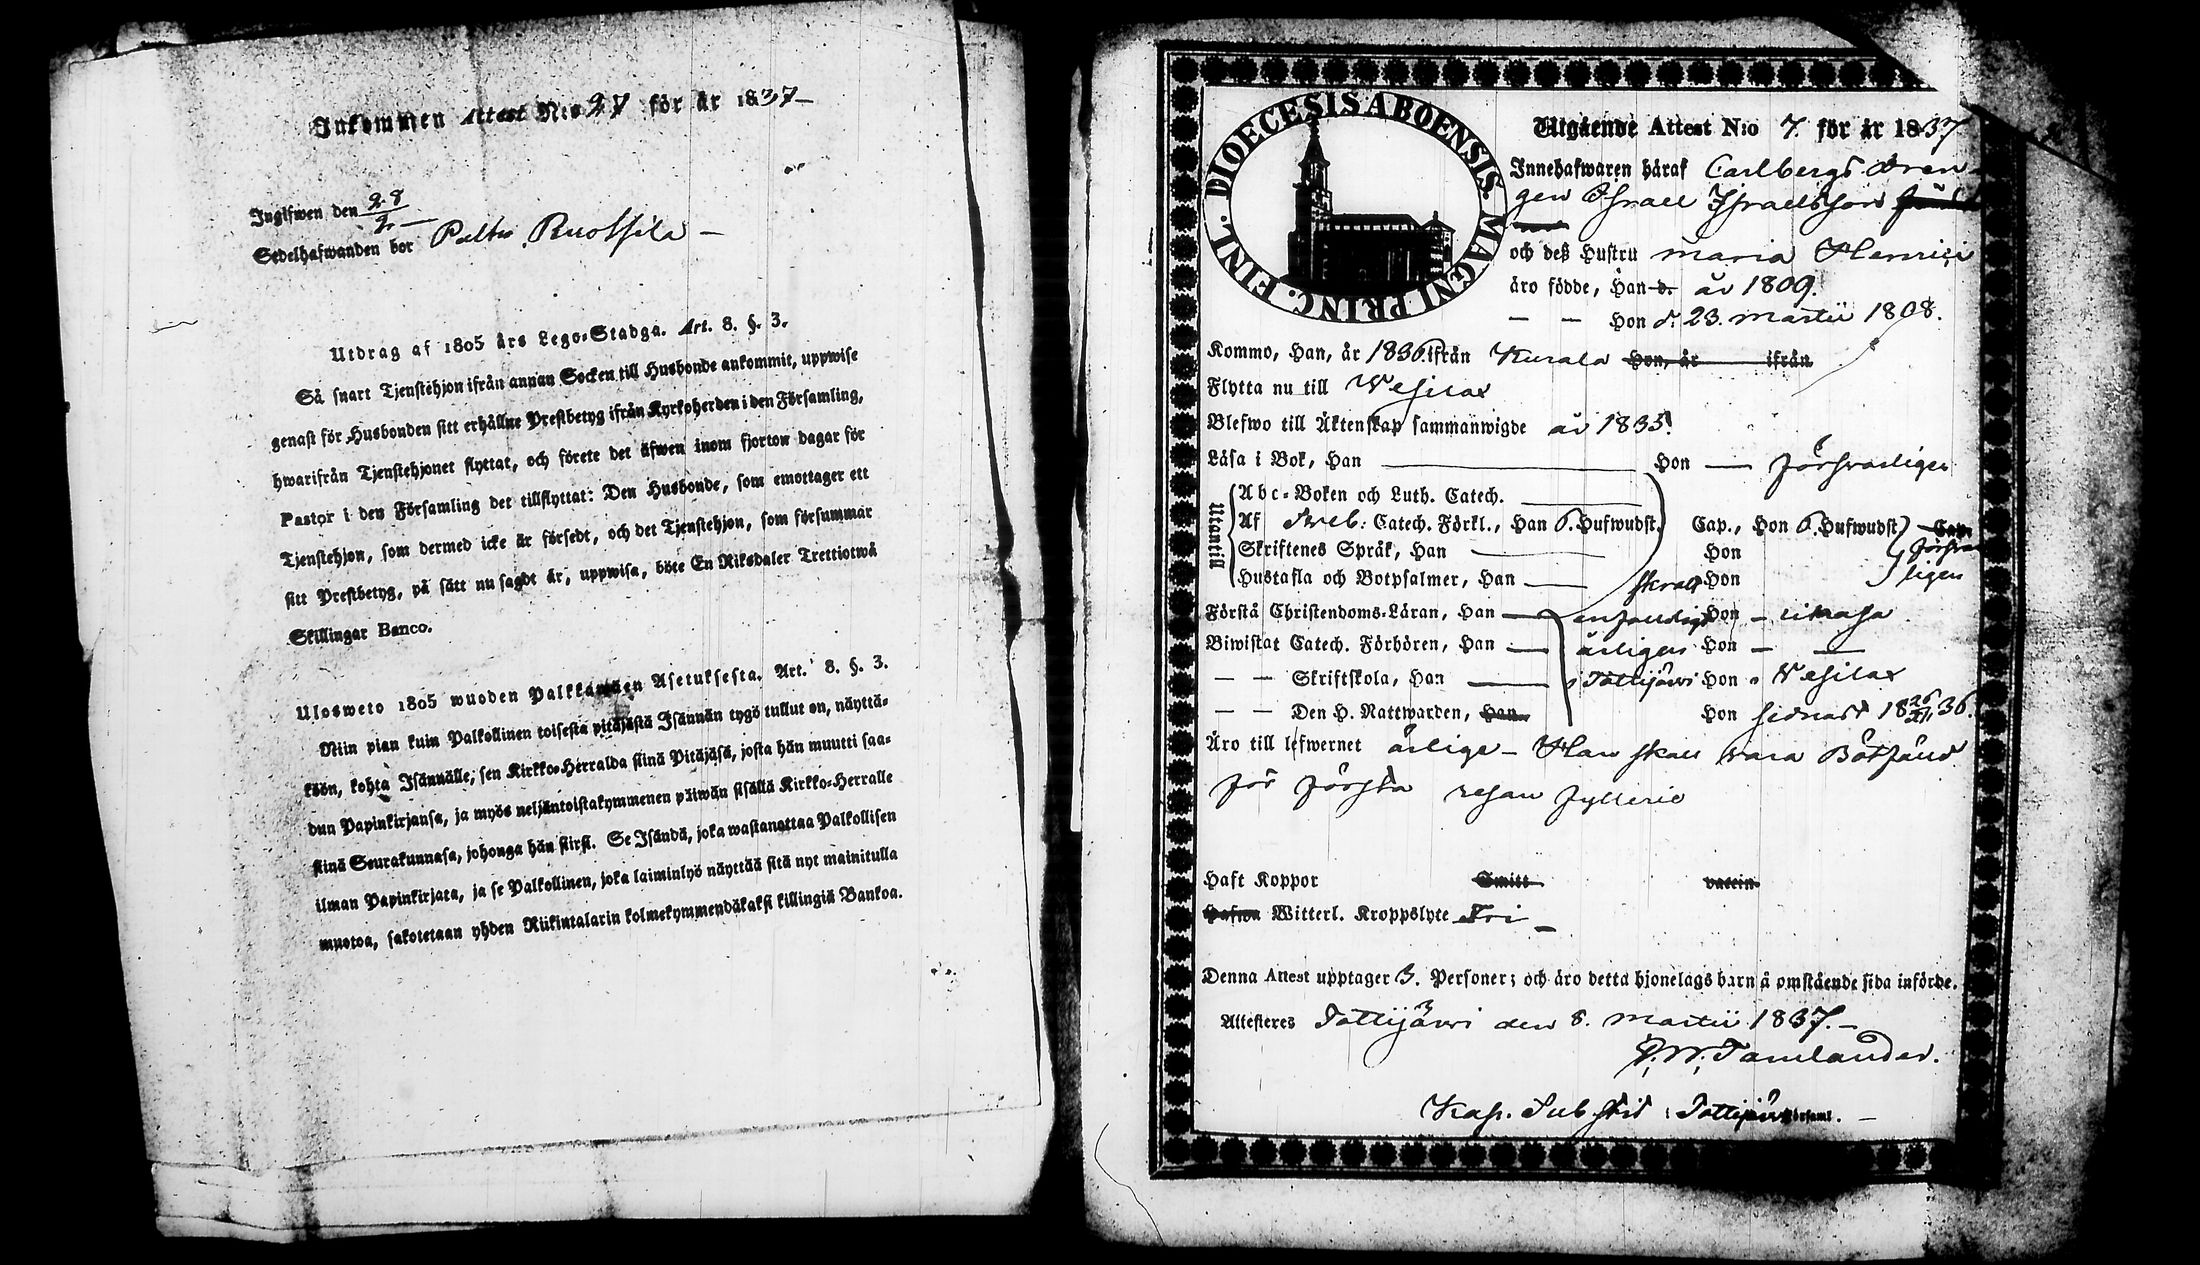 Inkommen Attest N:o 27 för år 1837 —
Ingifwen den 28/2 —
Sedelhafwanden bor Palho Ruotsila —
Utdrag af 1805 års Lego-Stadga. Art. 8. §. 3.
Så snart Tjenstehjon ifrån annan Socken till Husbonde ankommit, uppwise
genast för Husbonden sitt erhållne Prestbetyg ifrån Kyrkoherden i den Församling,
hwarifrån Tjenstehjonet flyttat, och förete det äfwen inom fjorton dagar för
Pastor i den Församling det tillflyttat: Den Husbonde, som emottager ett
Tjenstehjon, som dermed icke är försedt, och det Tjenstehjon, som försummar
sitt Prestbetyg, på sätt nu sagdt är, uppwisa, böte En Riksdaler Trettiotwå
Skillingar Banco.
Ulosweto 1805 wuoden Palkkawäen Asetuksesta. Art. 8. §. 3.
Niin pian kuin Palkollinen toisesta pitäjästä Isännän tygö tullut on, näyttä-
köön, kohta Isännälle, sen Kirkko-Herralda siinä Pitäjäsä, josta hän muutti saa-
dun Papinkirjansa, ja myös neljäntoistakymmenen päiwän sisällä Kirkko-Herralle
siinä Seurakunnasa, johonga hän siirsi. Se Isändä, joka wastanottaa Palkollisen
ilman Papinkirjata, ja se Palkollinen, joka laiminlyö näyttää sitä nyt mainitulla
muotoa, sakotetaan yhden Riikintalarin kolmekymmendäkaksi killingiä Bankoa.
DIOECESIS ABOENSIS. MAGNI PRINC. FINL.
Utgående Attest N:o 7. för år 1837
Innehafwaren häraf Carlbergs dren-
gen Israel Israelsson
och deß Hustru Maria Henrici
äro födde, Han d. år 1809.
— — Hon d. 23. Martii 1808.
Kommo, Han, år 1836 ifrån Kurala Hon, år ifrån
Flytta nu till Wesilax
Blefwo till Äktenskap sammanwigde år 1835.
Läsa i Bok, Han — Hon — försvarligen
Utantill
Abc-Boken och Luth. Catech.
Af Sveb: Catech. Förkl., Han 6. Hufwudst. Cap., Hon 6. Hufwudst. Cap.
Skriftenes Språk, Han — Hon försvar
Hustafla och Botpsalmer, Han — Hon ligen
Förstå Christendoms-Läran, Han — enfaldigt Hon —
Biwistat Catech. Förhören, Han — årligen Hon — —
— — Skriftskola, Han — i Tottijärvi Hon i Wesilax
— — Den H. Nattwarden, Han Hon sednast 18 26/21 36.
Äro till lefwernet ärlige — Han skall vara Bötfäld
för första resan fylleri
Haft Koppor Smitt vaccin
Hafwa Witterl. Kroppslyte Fri —
Denna Attest upptager 3. Personer; och äro detta hjonelags barn å omstående sida införde.
Attesteres Tottijärvi den 8. Martii 1837. —
P. W. Tamlander.
Kap. Substit i Tottijärvi Församl. —